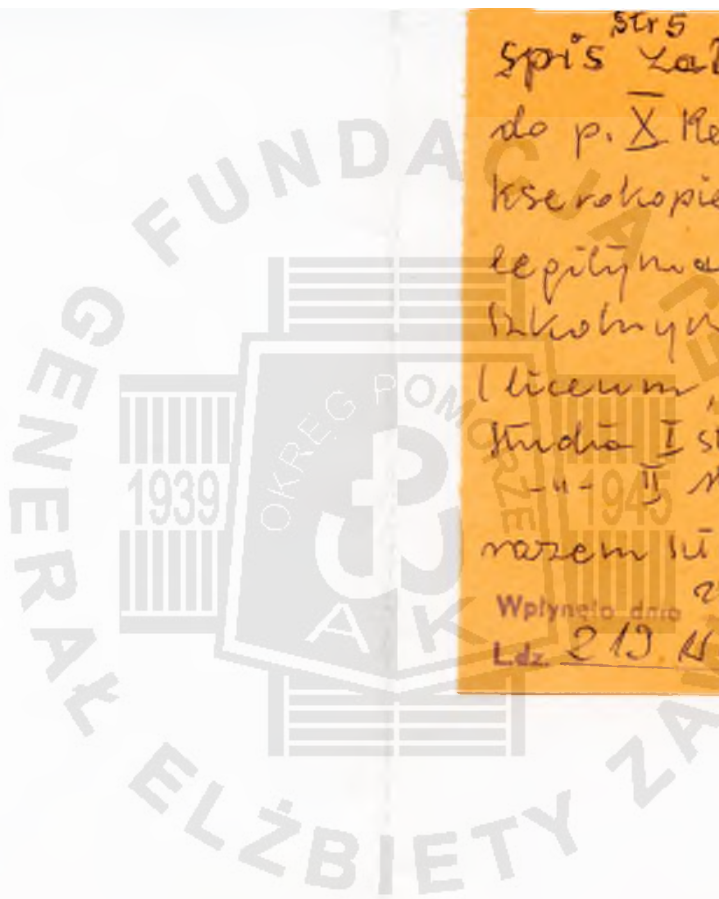 str 5
Spis Zał
do p. X Re
kserokopie
legityma
szkolnym
(liceum,
studia I st
-"- II
razem
Wpłynęło dnia
Ldz. 219.
FUNDACJA
GENERAŁ ELŻBIETY ZA
OKRĘG POMORZE
1939
1945
AK